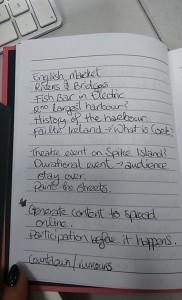 English market
Rivers & Bridges
Fish Bar in Electric
2nd largest harbour?
History of the harbour
Failte Ireland → What is Cork?
Theatre event on Spike Island?
Durational event → audience
stay over.
Paint the streets.
Generate content to spread
online.
Participation before it happens.
Countdown / rumours